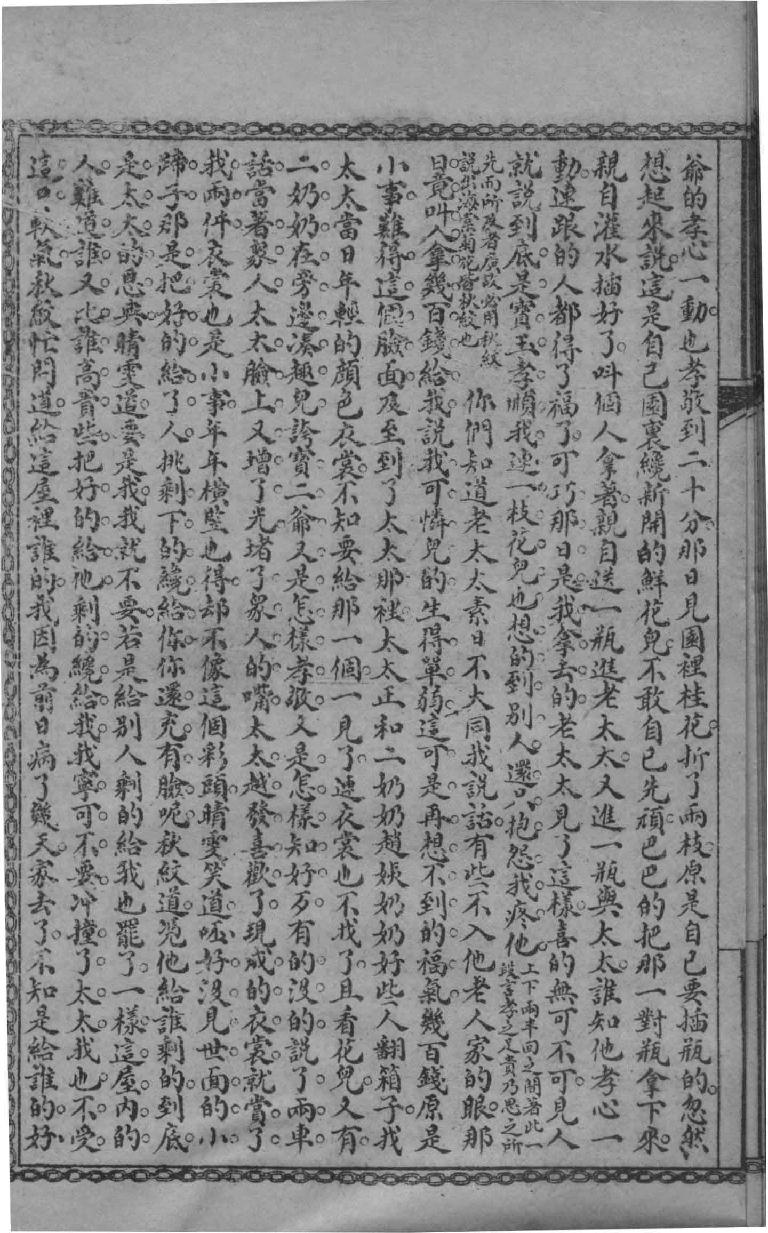 爺的孝心一動也孝敬到二十分那日見園裡桂花折了兩枝原是自已要插瓶的忽然
想起來說這是自己園裏纔新開的鮮花兒不敢自已先頑巴巴的把那一對瓶拿下來
親自灌水插好了呌個人拿著親自送一瓶進老太太又進一瓶與太太誰知他孝心一
動連跟的人都得了福了可巧那日是我拿去的老太太見了這樣喜的無可不可見人
就說到底是寳玉孝順我連一枝花兒也想的到别人還只抱怨我疼他上下兩半回之間著此一
先而所及者廣故必用秋紋
説出海棠菊花皆秋紋也
你們知道老太太素日不大同我説話有些不入他老人家的眼那
日竟叫人拿幾百錢給我説我可憐兒的生得單弱這可是再想不到的福氣幾百錢原是
小事難得這個臉面及至到了太太那裡太太正和二奶奶趙姨奶奶好些人翻箱子找
太太當日年輕的顔色衣裳不知要給那一個一見了連衣裳也不找了且看花兒又有
二奶奶在旁邊凑趣兒誇寳二爺又是怎樣孝敬又是怎樣知好歹有的没的説了兩車
話當著衆人太太臉上又增了光堵了衆人的嘴太太越發喜歡了現成的衣裳就賞了
我兩件衣裳也是小事年年横豎也得却不像這個彩頭晴雯笑道呸好没見世面的小
蹄子那是把好的給了人挑剩下的纔給你你還充有臉呢秋紋道凴他給誰剩的到底
是太太的恩典晴雯道要是我我就不要若是給别人剩的給我也罷了一樣這屋内的
人難道誰又比誰高貴些把好的給他剩的纔給我我寧可不要冲撞了太太我也不受
這口軟氣秋紋忙問道給這屋裡誰的我因為前日病了幾天家去了不知是給誰的好